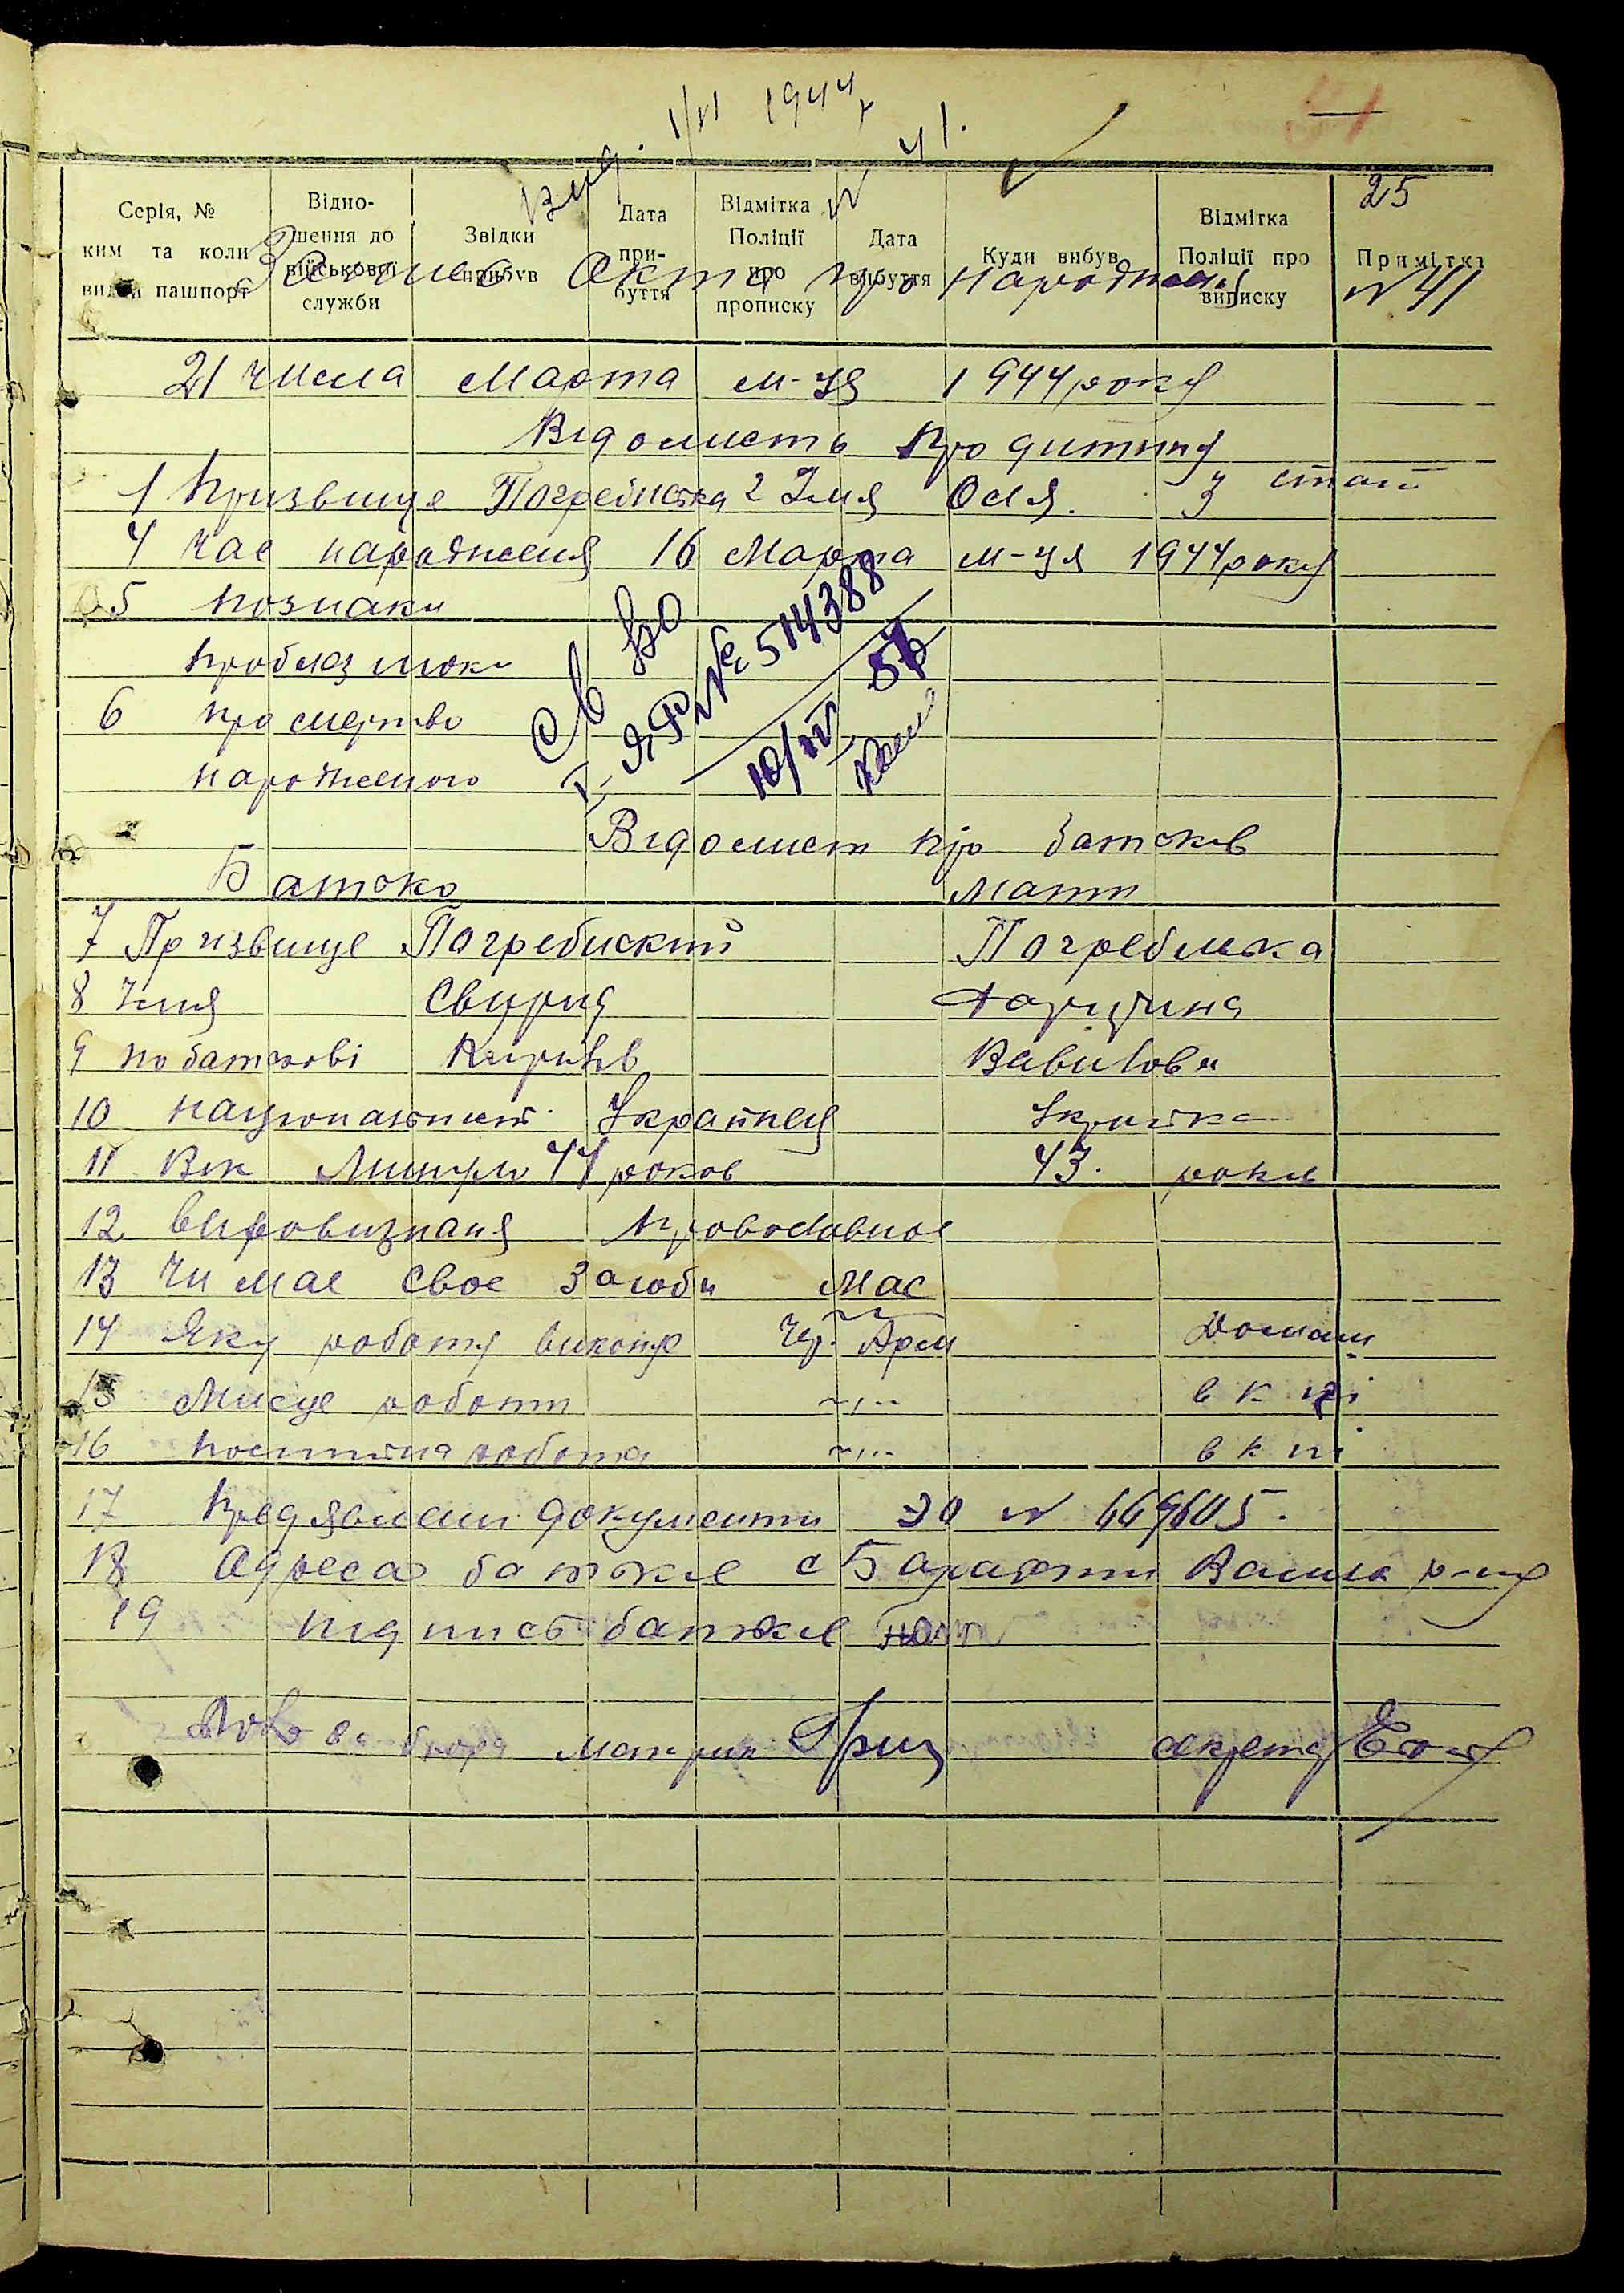 51
1/VI 1944
вид. № 41.
25
Серія, № ким та коли видан пашпорт
Відношення до військової служби
Звідки прибув
Дата прибуття
Відмітка Поліції про прописку
Дата вибуття
Куди вибув
Відмітка Поліції про виписку
Примітка
Запис акта про народження № 41
21 числа Марта м-ця 1944 року
Відомисть про дитину
1 Призвище Погребиська 2 Імя Оля. 3 стат
4 Час народженя 16 Марта м-ця 1944 року
5 познаки
про близнюки
6 про мертво
народженого
св во
I-ЯР № 514388
10/IV 56
Відомист про батьків
Батько Мати
7 Призвище Погребиский Погребиська
8 Імя Свирид
9 по батькові Вавилова
10 Національнист Українец Українка
11 Вік Минуло 44 роков 43. роки
12 Вировизнаня православное
13 Чи мае свое засоби Мае
14 Яку роботу виконує Чр. Арм Домаш
15 Мисце роботи -"- в к ці
16 постійна робота -"- в к ці
17 Предявлени документи ЭО №
18 Адреса батьків с
19 Підпись батьків
секретар